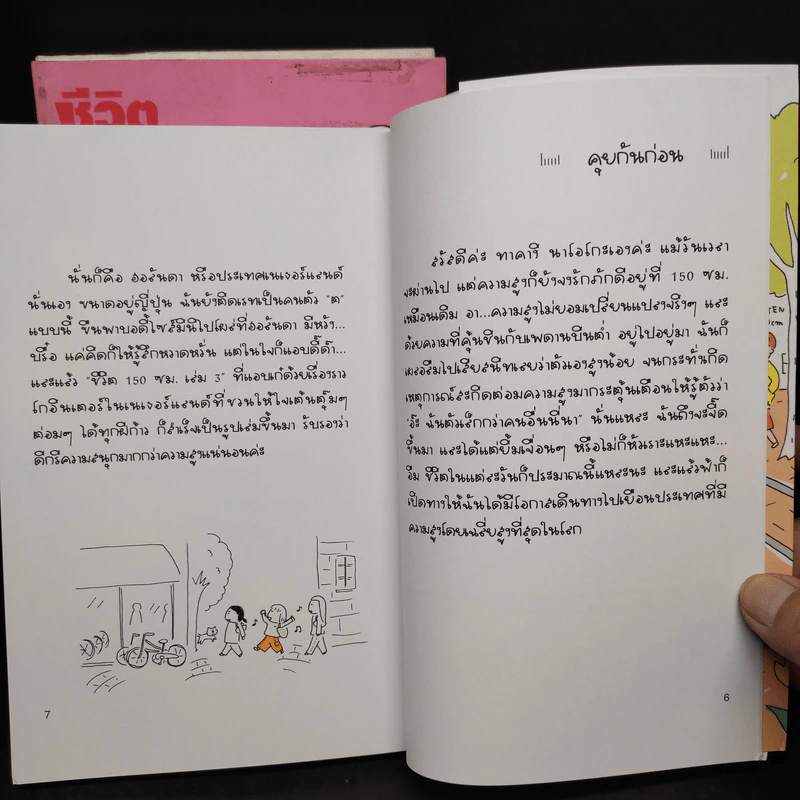 ชีวิต
คุยกันก่อน
สวัสดีค่ะ ทาคางิ นาโอโกะเองค่ะ แม้วันเวลา
จะผ่านไป แต่ความสูงก็ยังจงรักภักดีอยู่ที่ 150 ซม.
เหมือนเดิม อา...ความสูงไม่ยอมเปลี่ยนแปลงจริงๆ และ
ด้วยความที่คุ้นชินกับเพดานบินต่ำ อยู่ไปอยู่มา ฉันก็
เผลอลืมไปเสียสนิทเลยว่าตัวเองสูงน้อย จนกระทั่งเกิด
เหตุการณ์สะกิดต่อมความสูงมากระตุ้นเตือนให้รู้ตัวว่า
"อ๊ะ ฉันตัวเล็กกว่าคนอื่นนี่นา" นั่นแหละ ฉันถึงจะจี๊ด
ขึ้นมา และได้แต่ยิ้มเจื่อนๆ หรือไม่ก็หัวเราะแหะแหะ...
อืม ชีวิตในแต่ละวันก็ประมาณนี้แหละนะ และแล้วฟ้าก็
เปิดทางให้ฉันได้มีโอกาสเดินทางไปเยือนประเทศที่มี
ความสูงโดยเฉลี่ยสูงที่สุดในโลก
6
นั่นก็คือ ฮอลันดา หรือประเทศเนเธอร์แลนด์
นั่นเอง ขนาดอยู่ญี่ปุ่น ฉันยังติดเรทเป็นคนตัว "ต"
แบบนี้ ขืนพาบอดี้ไซส์มินิไปโผล่ที่ฮอลันดา มีหวัง...
บรื๋อ แค่คิดก็ให้รู้สึกหวาดหวั่น แต่ในใจก็แอบดี๊ด๊า...
และแล้ว "ชีวิต 150 ซม. เล่ม 3" ที่แอบเก๋ด้วยเรื่องราว
โกอินเตอร์ในเนเธอร์แลนด์ที่ชวนให้ใจเต้นตุ๊มๆ
ต่อมๆ ได้ทุกฝีก้าว ก็สำเร็จเป็นรูปเล่มขึ้นมา รับรองว่า
ดีกรีความสนุกมากกว่าความสูงแน่นอนค่ะ
7